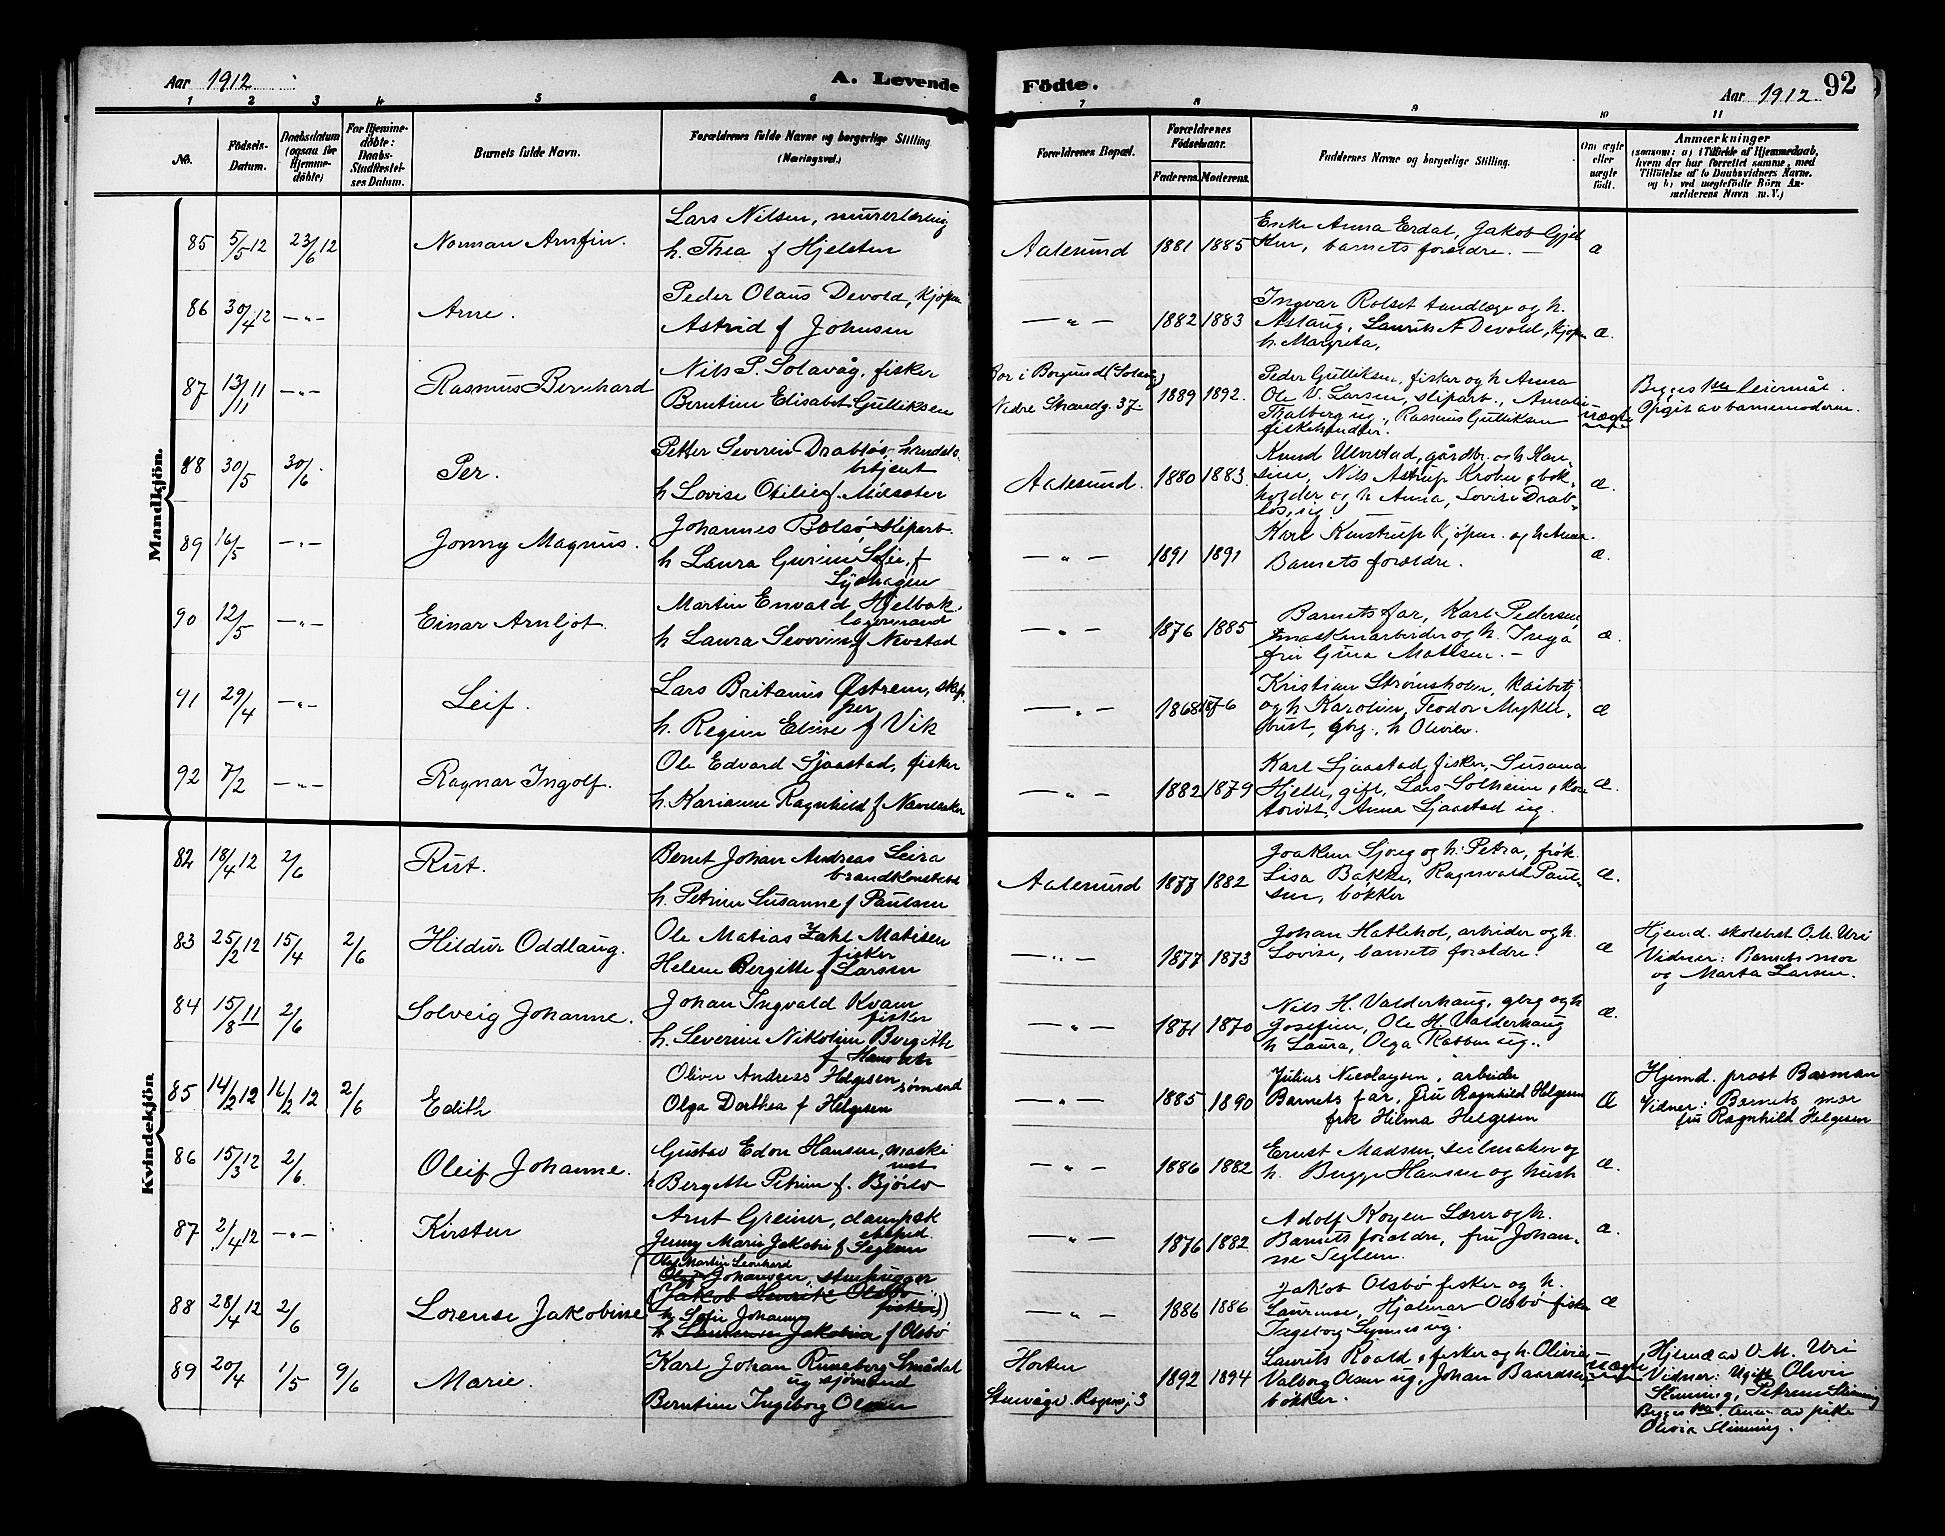 Aar 1912
A. Levende Födte.
Aar 1912
92
1 2 3 4 5 6 7 8 9 10 11
No.
Födsels-Datum.
Daabsdatum (ogsaa for Hjemmedöbte)
For Hjemmedöbte: Daabs-Stadfæstelses Datum.
Barnets fulde Navn.
Forældrenes fulde Navne og borgerlige Stilling (Næringsvei.)
Forældrenes Bopæl.
Forældrenes Födselsaar.
Faderens. Moderens.
Faddernes Navne og borgerlige Stilling.
Om ægte eller uægte födt.
Anmærkninger
(saasom: a) i Tilfælde af Hjemmedaab, hvem der har forrettet samme, med Tilföielse af to Daabsvidners Navne. og b) ved uægtefödte Börn Anmelderens Navn m. V.)
Mandkjön.
85 5/5 12 23/6 12 Norman Arnfin.
Lars Nilsen, murerlærling
h. Thea f Hjelsten
Aalesund 1881 1885
Enke Anna Erdal, Jakob
barnets forældre. —
æ
86 30/4 12 —"— Arne.
Peder Olaus Devold, kjøpm
Astrid f Johnsen
—"— 1882 1883
Ingvar Rolset tandlæge og h.
Aslaug, Laurits A Devold, kjøpm
h. Margreta,
æ.
87 13/11 11 —"— Rasmus Bernhard
Nils P. Solavåg, fisker
Berntine Elisabet Gulliksen
Bor i Borgund (Solavåg)
Nedre Strandg. 37
1889 1892.
Peder Gulliksen, fisker og h Anna
Ole V. Larsen, sliparb., Amalie
Thalberg ug, Rasmus Gulliksen
fiskehandler.
uægte
Begges 1ste leiermål.
Opgit av barnemoderen.
88 30/5 30/6. Per.
Petter Severin Drabløs, handels-
betjent
h Lovise Otilie f Midsæter
Aalesund. 1880 1883.
Knud Ulvestad, gårdbr. og h Kar-
sine, Nils Astrup Kroken, bok-
holder og h Anna, Lovise Drab-
løs, ug
æ.
89 16/5 —"— Jonny Magnus.
Johannes Bolsø sliparb.
h Laura Gurine Sofie f
—"— 1891 1891
Karl Kjøpm. og h Anna.
Barnets forældre.
æ.
90 12/5 —"— Einar Arnljot.
Martin Envald Hjelbak.
lagermand
h Laura Severine f Nerstad
—"— 1876 1885
Barnets far, Karl Pedersen
maskinarbeider og h. Inga
fru Gina Matisen. —
æ.
91 29/4 —"— Leif.
Lars Britanus Østrem, skip
per
h. Regine Eline f Vik
—"— 1868 1876
Kristian Strømsholm,
og h Karoline, Teodor Mykle-
bust, gbg., h Olivia.
æ
92 7/2 —"— Ragnar Ingolf.
Ole Edvard Sjaastad, fisker
h. Karianne Ragnhild f
—"— 1882 1879
Karl Sjaastad, fisker, Susana
Hjelle, gift, Lars Solheim,
Anna Sjaastad ug.
æ.
Kvindekjön
82 18/4 12 2/6 Rut.
Bernt Johan Andreas Leira
brandkonstabel
h. Petrine Susanne f Paulsen
Aalesund 1877 1882
Joakim Sjong og h. Petra, frøk.
Lisa Bakke, Ragnvald Paul-
sen, bøkker
æ.
83 25/2 12 15/4 2/6 Hildur Oddlaug.
Ole Matias Zahl Matisen
fisker
Helene Bergitte f Larsen
—"— 1877 1873
Johan Hatlehol, arbeider og h.
Lovise, barnets forældre.
æ
Hjemd. skolebest O. M. Uri
Vidner: Barnets mor
og Marta Larsen.
84 15/8 11 2/6 Solveig Johanne.
Johan Ingvald Kvam
fisker
h. Severine Nikoline Bergitte
—"— 1871 1870
Nils H. Valderhaug, gbrg og h
Josefine, Ole H. Valderhaug
h Laura, Olga ug..
æ.
85 14/2 12 16/2 12 2/6 Edith
Oliver Andreas Helgesen
sømand
Olga Dorthea f Helgesen
—"— 1885 1890
Julius Nicolaysen, arbeider
Barnets far, fru Ragnhild Helgesen
frk Hilma Helgesen
Æ
Hjemd. prost Barman
Vidner: Barnets mor
fru Ragnhild Helgesen
86 15/3 12 2/6. Oleif Johanne.
Gustav Edon Hansen, maski
nist
h Bergette Petrine f. Bjørlo
—"— 1886 1882
Ernst Madsen, seilmaker og
h. Bugge Hansen og hust
æ.
87 2/4 12 —"— Kirsten
Arnt Greiner, dampsk
eksped.
Jenny Marie Jakobie f Seglem
—"— 1876 1882
Adolf Koyen Lærer og h.
Barnets forældre, fru Johan-
ne Seglem.
æ.
88 28/4 12 2/6 Lorense Jakobine
Ole Martin Leonhard
Johansen, stenhugger
Jakob Henrik Olsbø
fisker
h Sofie Johanna
h Laurense Jakobia f Olsbø
—"— 1886 1886
Jakob Olsbø fisker og h.
Laurense, Hjalmar Olsbø fisker
Ingeborg Synnes ug.
æ
89 20/4 1/5 9/6 Marie.
Karl Johan Runeborg Smådal
ug sjømand
Berntine Ingeborg Olsen
Horten
Stenvåge. 3
1892 1894
Laurits Roald, fisker og h. Olivia
Valborg Olsen ug, Johan Baardsen,
bøkker.
uægte
Hjemd av O. M. Uri
Vidner: Ugift Olivia
Skinning, Petrine Skinning
Begges 1ste. Anm. av pike
Olivia Skinning.